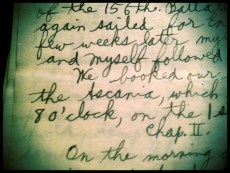 of the 156th. Batta
again sailed for En
few weeks later my
and myself followed
We booked our
the Ascania, which
8 O'clock, on the 1s
Chap. II.
On the morning